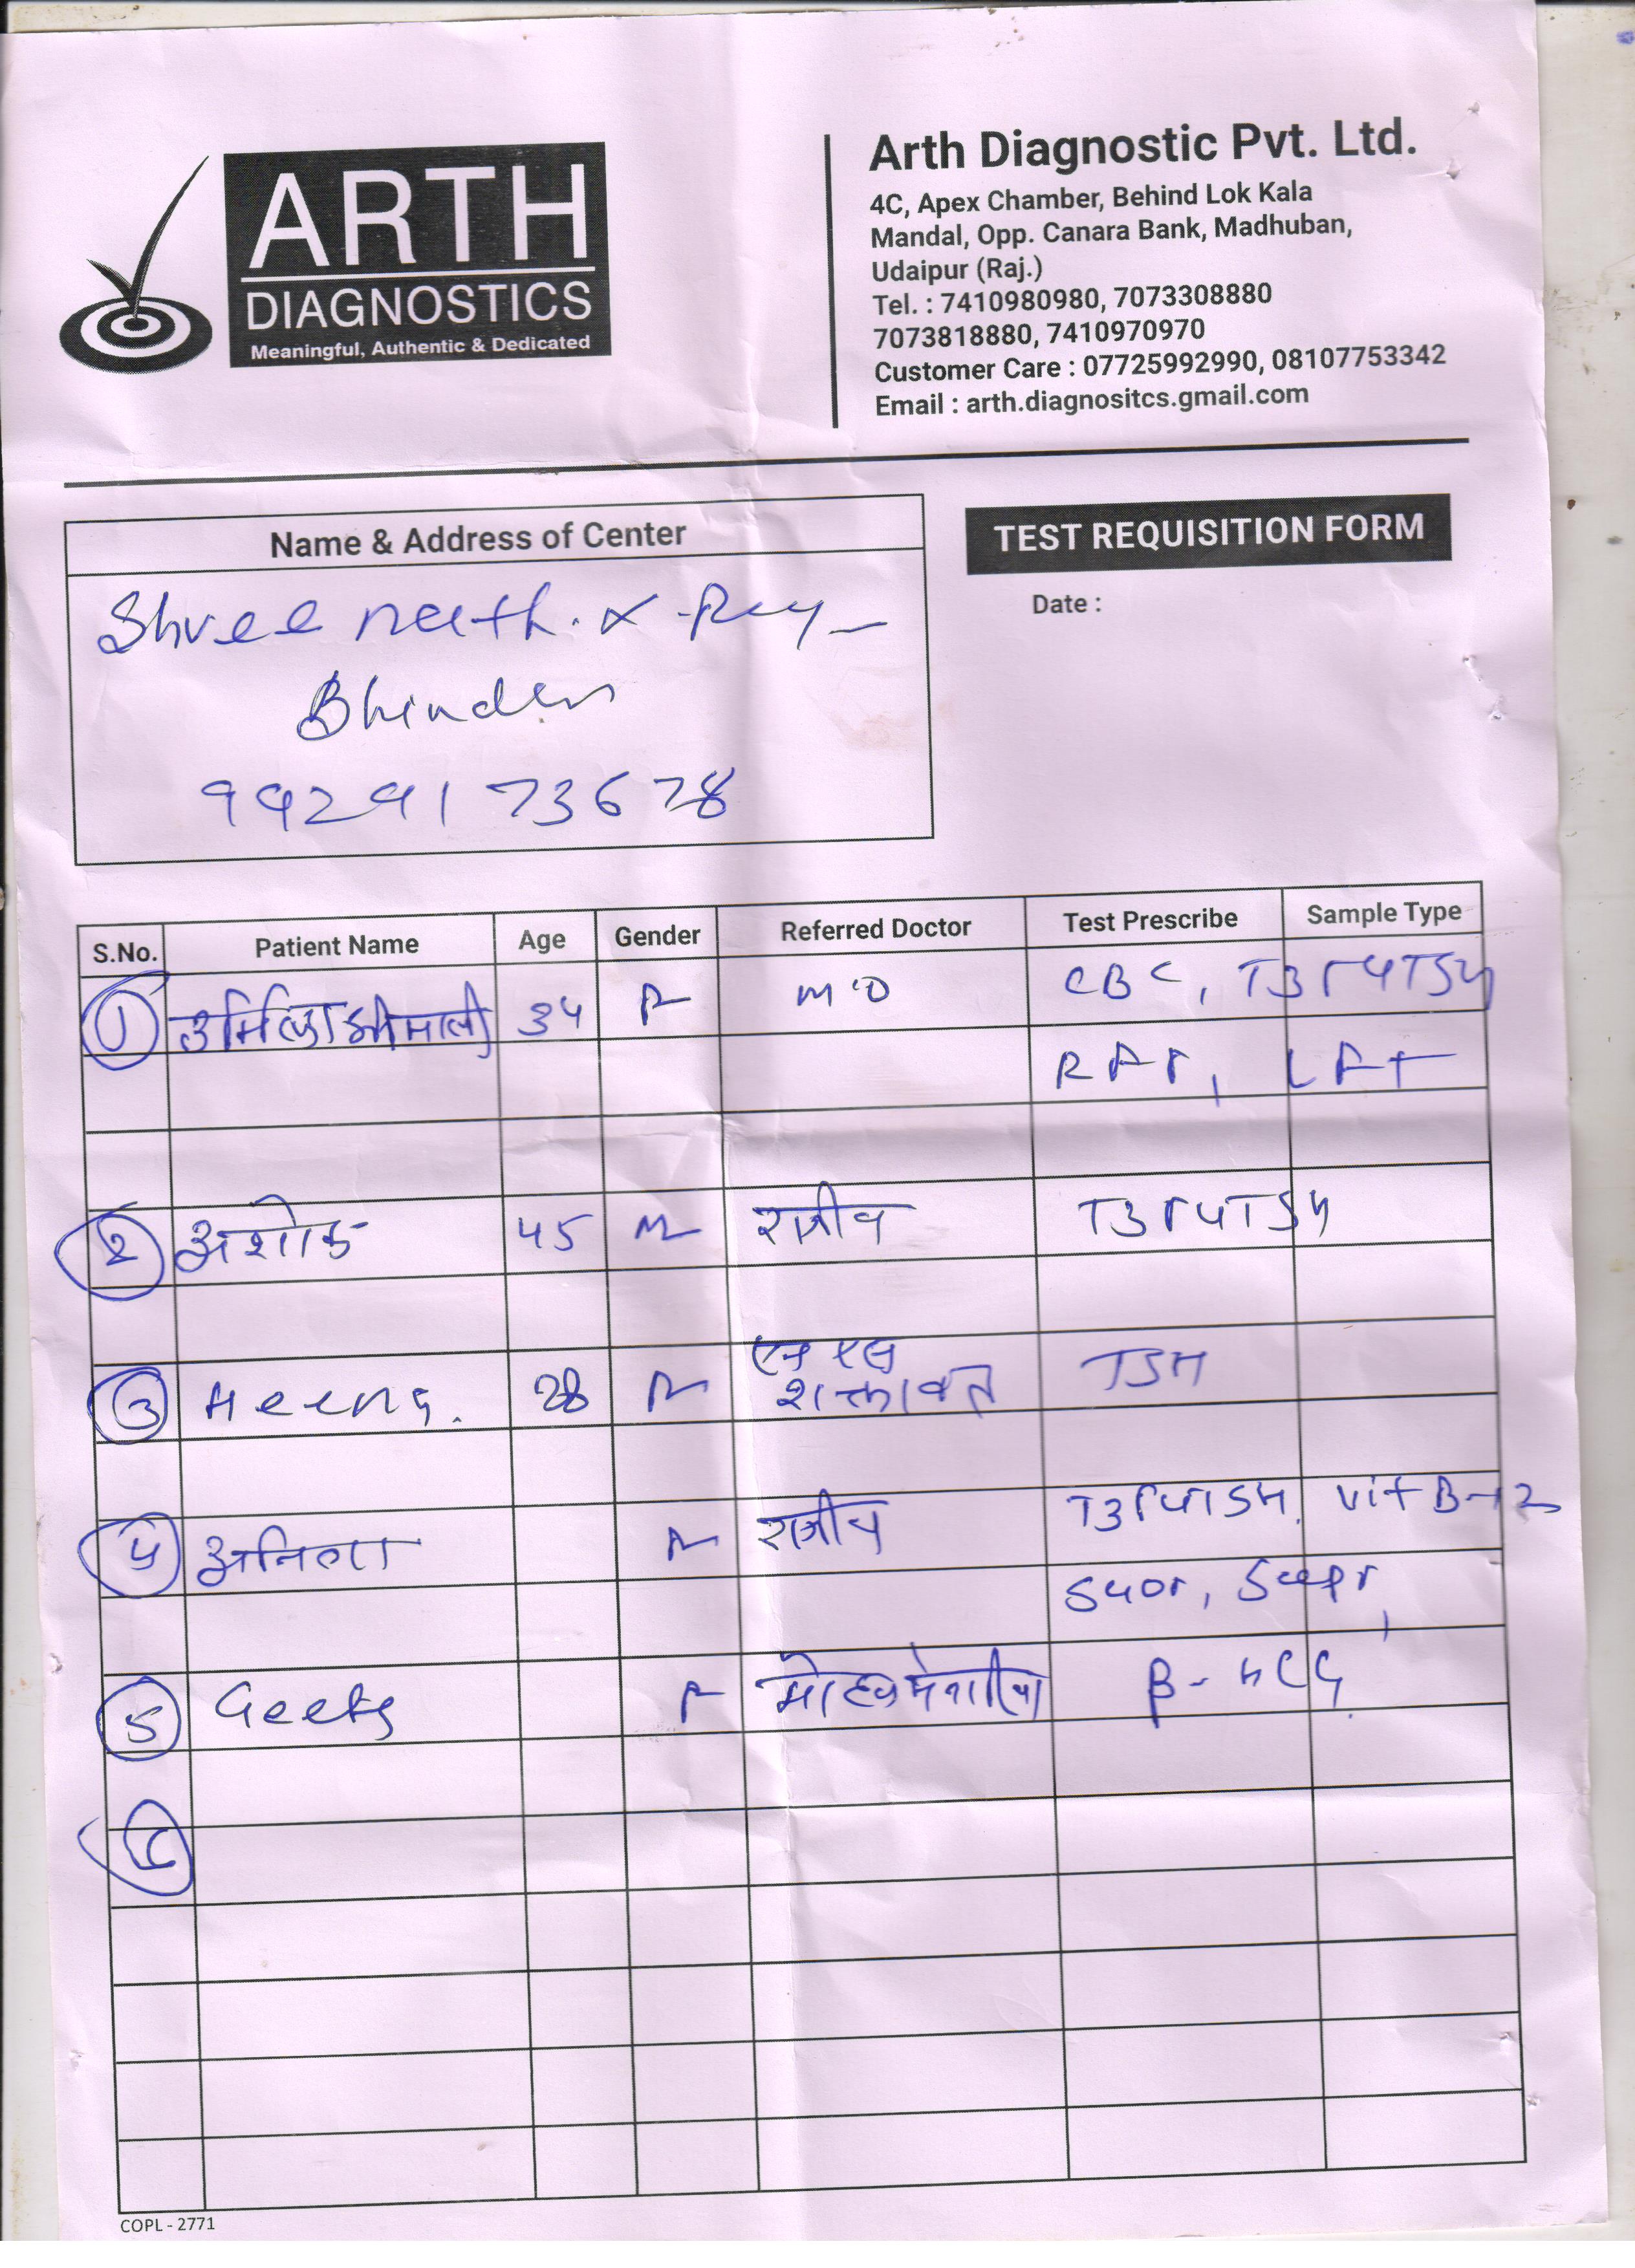 ARTH
DIAGNOSTICS
Meaningful, Authentic & Dedicated
Arth Diagnostic Pvt. Ltd.
4C, Apex Chamber, Behind Lok Kala
Mandal, Opp. Canara Bank, Madhuban,
Udaipur (Raj.)
Tel. : 7410980980, 7073308880
7073818880, 7410970970
Customer Care : 07725992990, 08107753342
Email : arth.diagnositcs.gmail.com
Name & Address of Center
TEST REQUISITION FORM
Date :
Shree nath. X-Ray
Bhinder
9929173678
S.No. Patient Name Age Gender Referred Doctor Test Prescribe Sample Type
1 उर्मिला श्रीमाली 34 F M D CBC, T3T4TSH
RFT, LFT
2 अशोक 45 M राजीव T3T4TSH
3 Heena. 28 F एन एस TSH
शक्तावत
4 अनिता F राजीव T3T4TSH. Vit B-12
SGOT, SGPT,
5 Geeta F β-HCG.
6
COPL - 2771